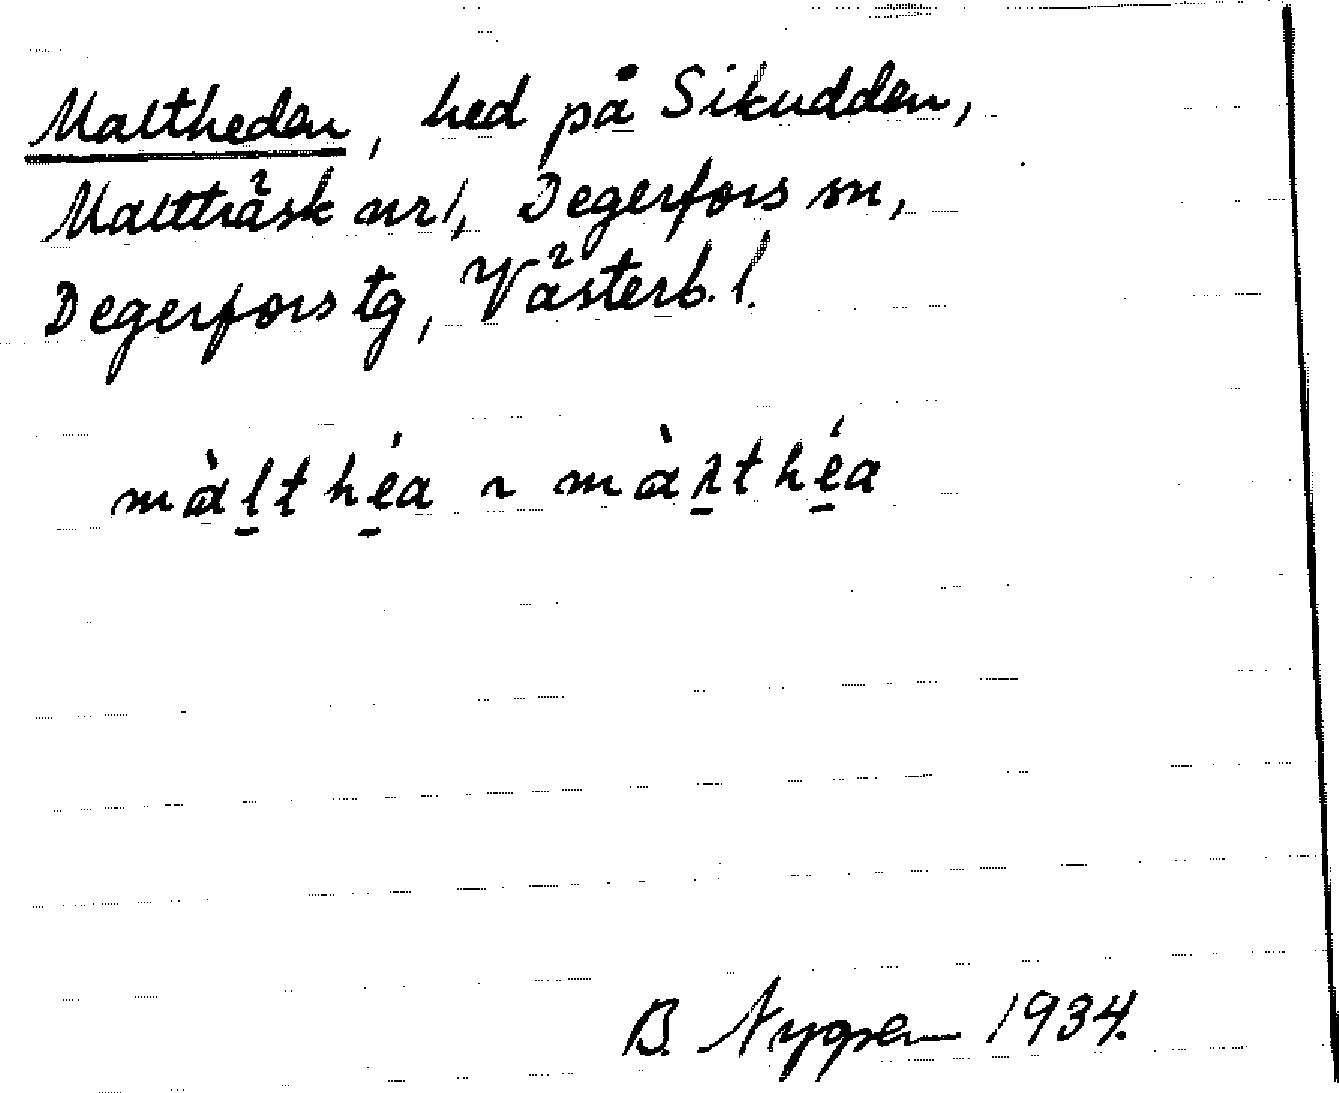 Maltheden, hed på Sikudden,
Malträsk nr 1, Degerfors sn,
Degerfors tg, Västerb. l.
màl̠t hé̠a ~ màɽ̠t hé̠a
B. Nygren 1934.